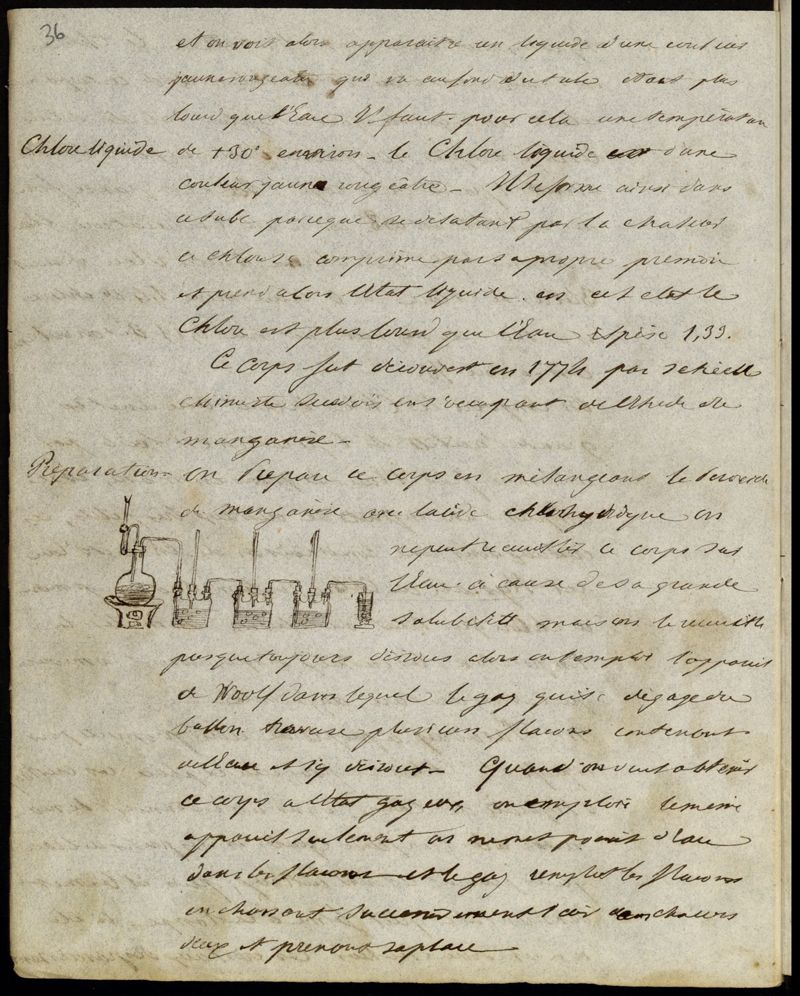 36
et on voit alors apparaitre un liquide d'une couleur
jaune rougeatre qui va au fond du tube étant plus
lourd que l'Eau Il faut pour cela une température
Chlore liquide
de +30° environ - le Chlore liquide est d'une
couleur jaune rougeâtre - Il se forme ainsi dans
ce tube parceque se dilatant par la chaleur
ce chlore se comprime par sa propre pression
et prend alors l'état liquide. en cet état le
Chlore est plus lourd que l'Eau et pèse 1,33.
Ce corps fut découvert en 1774 par Scheele
chimiste suédois en s'occupant de l'étude du
manganèse -
Préparation -
On Prépare ce corps en mélangeant le
de manganèse avec l'acide chlorhydrique on
ne peut recueillir ce corps sur
l'Eau à cause de sa grande
solubilité mais on le recueille
presque toujours dissous alors on emploi l'appareil
de Woolf dans lequel le gaz qui se dégage du
ballon traverse plusieurs flacons contenant
de l'Eau et s'y dissout - Quand on veut obtenir
ce corps a l'état gazeux, on emploie le même
appareil seulement on ne met point d'eau
dans les flacons et le gaz remplit les flacons
en chassant successivement l'air dans chacun
deux et prenant sa place